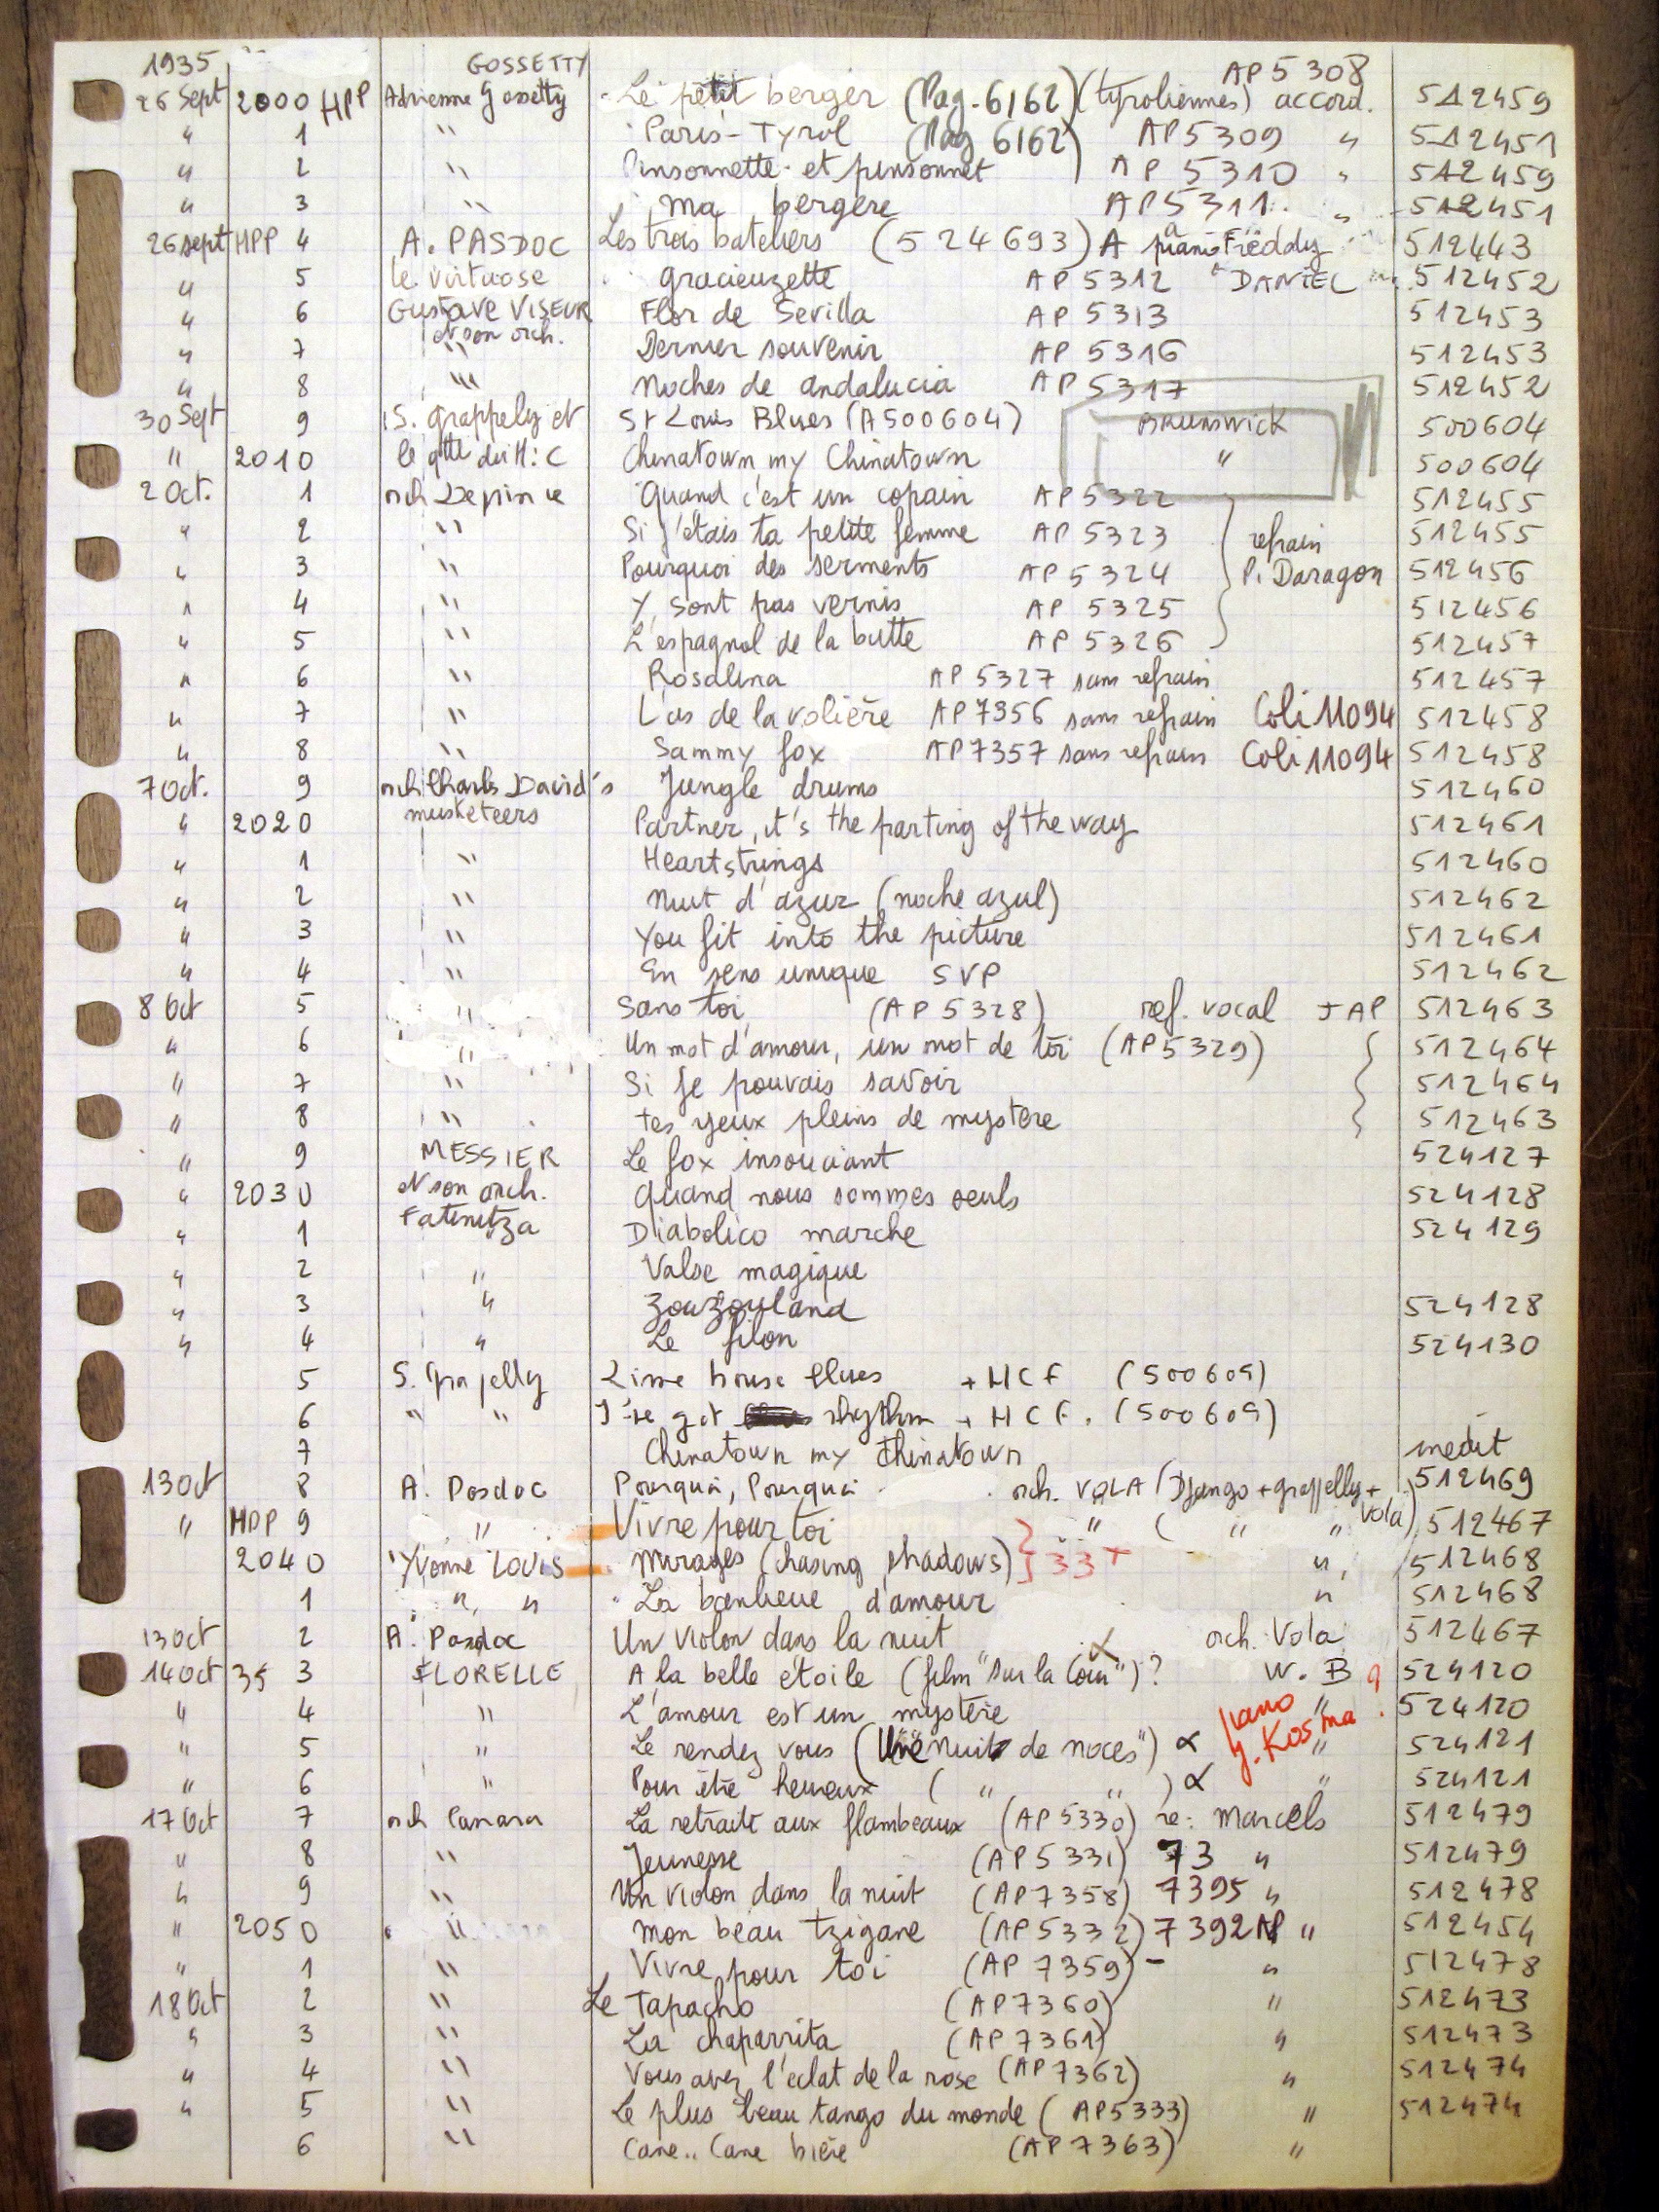 1935 GOSSETTY AP 5 308
26 Sept 2000 HPP Adrienne Gossetty Le petit berger (Pag. 6162) (tyroliennes) accord. 512459
" 1 " Paris-Tyrol (Pag 6162) AP5309 " 512451
" 2 " Pinsonnette et pinsonnet AP 5310 " 512459
" 3 " ma bergère AP5311. " 512451
26 sept HPP 4 A. PASDOC Les trois bateliers (524693) A piano Freddy 512443
" 5 le virtuose gracieuzette AP 5312 DANIEL 512452
" 6 Gustave VISEUR Flor de Sevilla AP 5313 512453
et son orch.
" 7 " Dernier souvenir AP 5316 512453
" 8 " Noches de andalucia AP 5317 512452
30 Sept 9 S. grappely et St Louis Blues (A500604) BRUNSWICK 500604
" 2010 le qtte du H.C Chinatown my Chinatown " 500604
2 Oct. 1 orch Deprince Quand c'est un copain AP5322 512455
" 2 " Si j'étais ta petite femme AP 5323 refrain 512455
" 3 " Pourquoi des serments AP 5324 P. Daragon 512456
" 4 " Y sont pas vernis AP 5325 512456
" 5 " L'espagnol de la butte AP 5326 512457
" 6 " Rosalina AP 5327 sans refrain 512457
" 7 " L'as de la volière AP7356 sans refrain Coli 11094 512458
" 8 " Sammy fox AP7357 sans refrain Coli 11094 512458
7 Oct. 9 orch Charles David's Jungle drums 512460
" 2020 musketeers Partner, it's the parting of the way 512461
" 1 " Heartstrings 512460
" 2 " Nuit d'azur (noche azul) 512462
" 3 " You fit into the picture 512461
" 4 " En sens unique SVP 512462
8 Oct 5 " Sans toi (AP 5328) ref. vocal JAP 512463
" 6 " Un mot d'amour, un mot de toi (AP5329) 512464
" 7 " Si je pouvais savoir 512464
" 8 " tes yeux pleins de mystère 512463
" 9 MESSIER Le fox insouciant 524127
" 2030 et son orch. Quand nous sommes seuls 524128
" 1 Fatinitza Diabolico marche 524129
" 2 " Valse magique
" 3 " Zouzouland 524128
" 4 " Le filon 524130
5 S. Grapelly Lime house blues + HCF (500609)
6 " " I've got rhythm + HCF. (500609)
7 Chinatown my Chinatown inédit
13 Oct 8 A. Pasdoc Pourquoi, Pourquoi orch. VOLA (Django + grappelly + Vola) 512469
" HPP 9 " Vivre pour toi " ( " " 512467
2040 Yvonne LOUIS Mirages (chasing shadows) 33 + " 512468
1 " " La banlieue d'amour " 512468
13 Oct 2 A. Pasdoc Un violon dans la nuit orch. Vola 512467
14 Oct 35 3 FLORELLE A la belle étoile (film "sur la ") ? W. B 524120
" 4 " L'amour est un mystère " 524120
piano J. Kosma ?
" 5 " Le rendez vous (Une nuit de noces") α " 524121
" 6 " Pour être heureux ( " " ) α " 524121
17 Oct 7 orch Canara La retraite aux flambeaux (AP 5330) re: Marcels 512479
" 8 " Jeunesse (AP5331) 73 " 512479
" 9 " Un violon dans la nuit (AP7358) 7395 " 512478
" 2050 " Mon beau tzigane (AP5332) 7392 AP " 512454
" 1 " Vivre pour toi (AP 7359) - " 512478
18 Oct 2 " Le Tapacho (AP7360) " 512473
" 3 " La chaparrita (AP 7361) " 512473
" 4 " Vous avez l'éclat de la rose (AP 7362) " 512474
" 5 " Le plus beau tango du monde (AP5333) " 512474
6 " Cane.. Cane bière (AP 7363) "